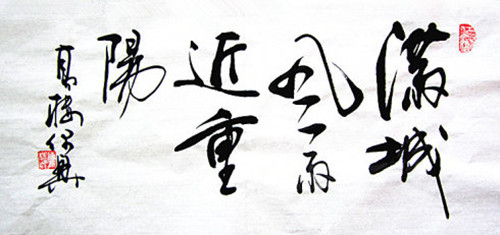 滿城
风雨
近重
陽